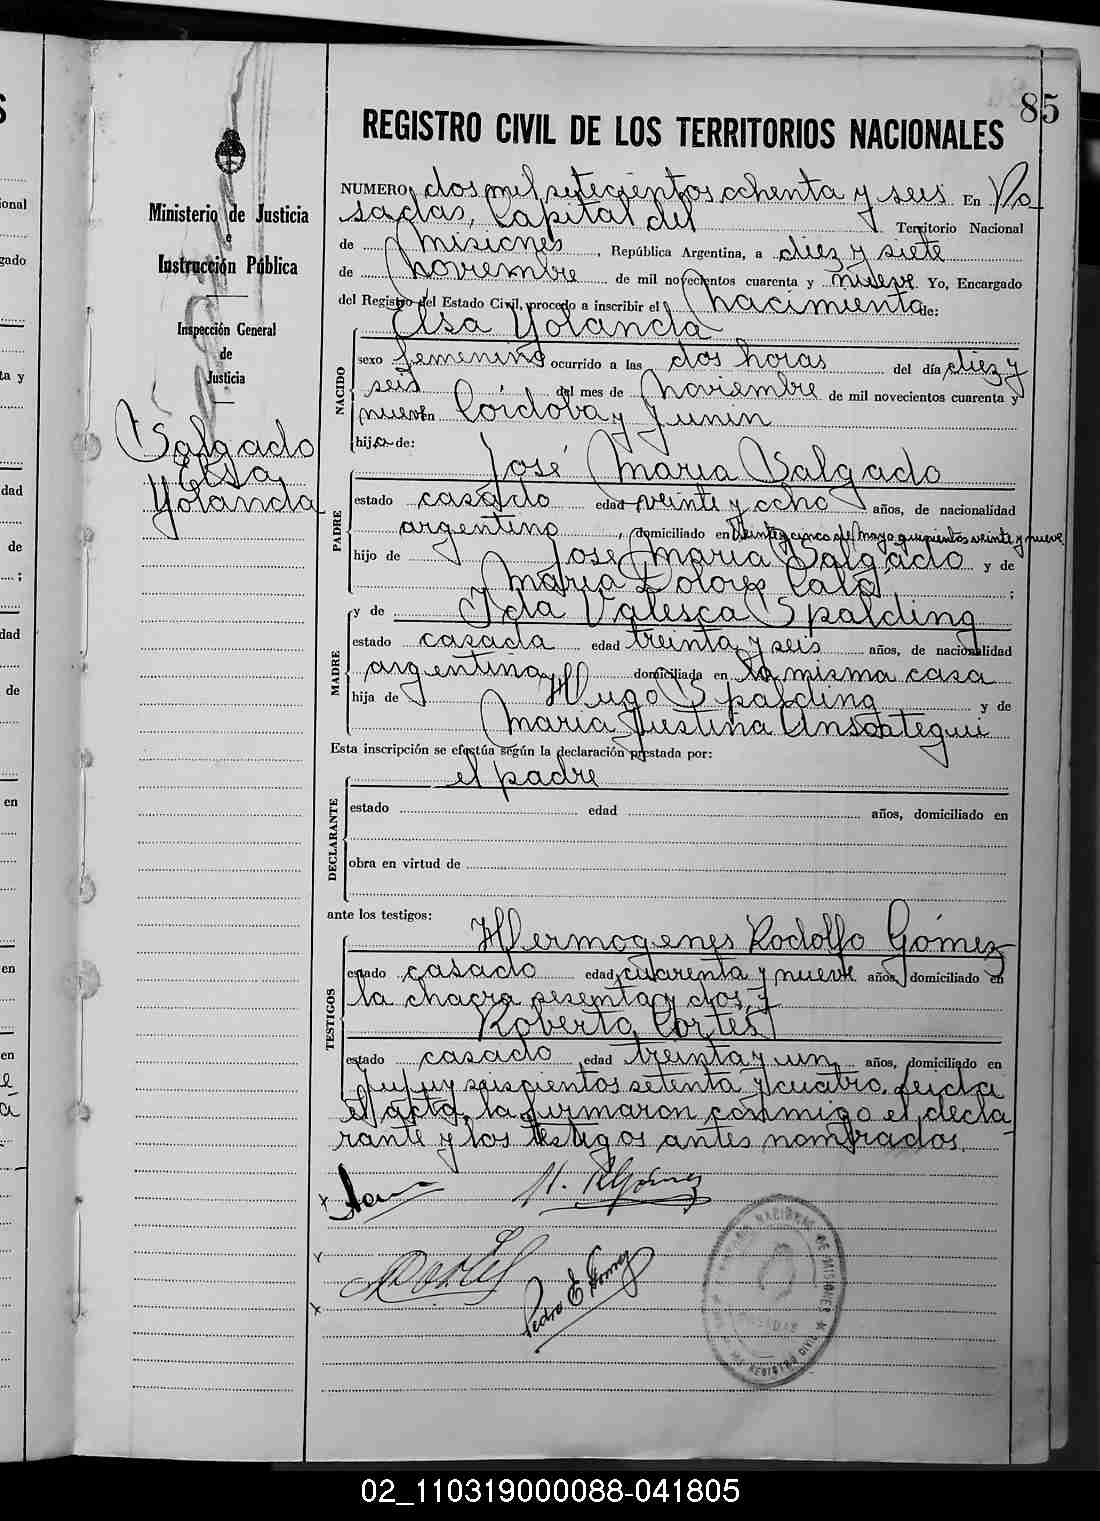 85
REGISTRO CIVIL DE LOS TERRITORIOS NACIONALES
Ministerio de Justicia
e
Instrucción Pública
Inspección General
de
Justicia
Salgado
Elsa
Yolanda
NUMERO dos mil setecientos ochenta y seis En Po-
sadas, Capital del Territorio Nacional
de Misiones, República Argentina, a diez y siete
de noviembre de mil novecientos cuarenta y nueve Yo, Encargado
del Registro del Estado Civil, procedo a inscribir el nacimiento de:
NACIDO
Elsa Yolanda
sexo femenino ocurrido a las dos horas del día diez y
seis del mes de noviembre de mil novecientos cuarenta y
nueve en Córdoba y Junin
hija de:
PADRE
José Maria Salgado
estado casado edad veinte y ocho años, de nacionalidad
argentino, domiciliado en Veinte y cinco de Mayo quinientos veinte y nueve
hijo de José Maria Salgado y de
Maria Dolores Caló;
MADRE
y de Ida Valesca Spalding
estado casada edad treinta y seis años, de nacionalidad
argentina domiciliada en la misma casa
hija de Hugo Spalding y de
Maria Justina Ansoategui
Esta inscripción se efectúa según la declaración prestada por:
DECLARANTE
el padre
estado edad años, domiciliado en
obra en virtud de
ante los testigos:
TESTIGOS
Hermogenes Rodolfo Gómez
estado casado edad cuarenta y nueve años, domiciliado en
la chacra sesenta y dos, y
Roberto Cortés
estado casado edad treinta y un años, domiciliado en
Jujuy seiscientos setenta y cuatro. Leida
el acta, la firmaron conmigo el decla-
rante y los testigos antes nombrados.
H. R Gómez
RCortés
Pedro E. Gomez
REGISTRO CIVIL
POSADAS
02_110319000088-041805